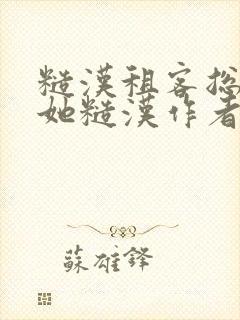 糙漢租客捴
她糙漢作者
蘇雄鋒